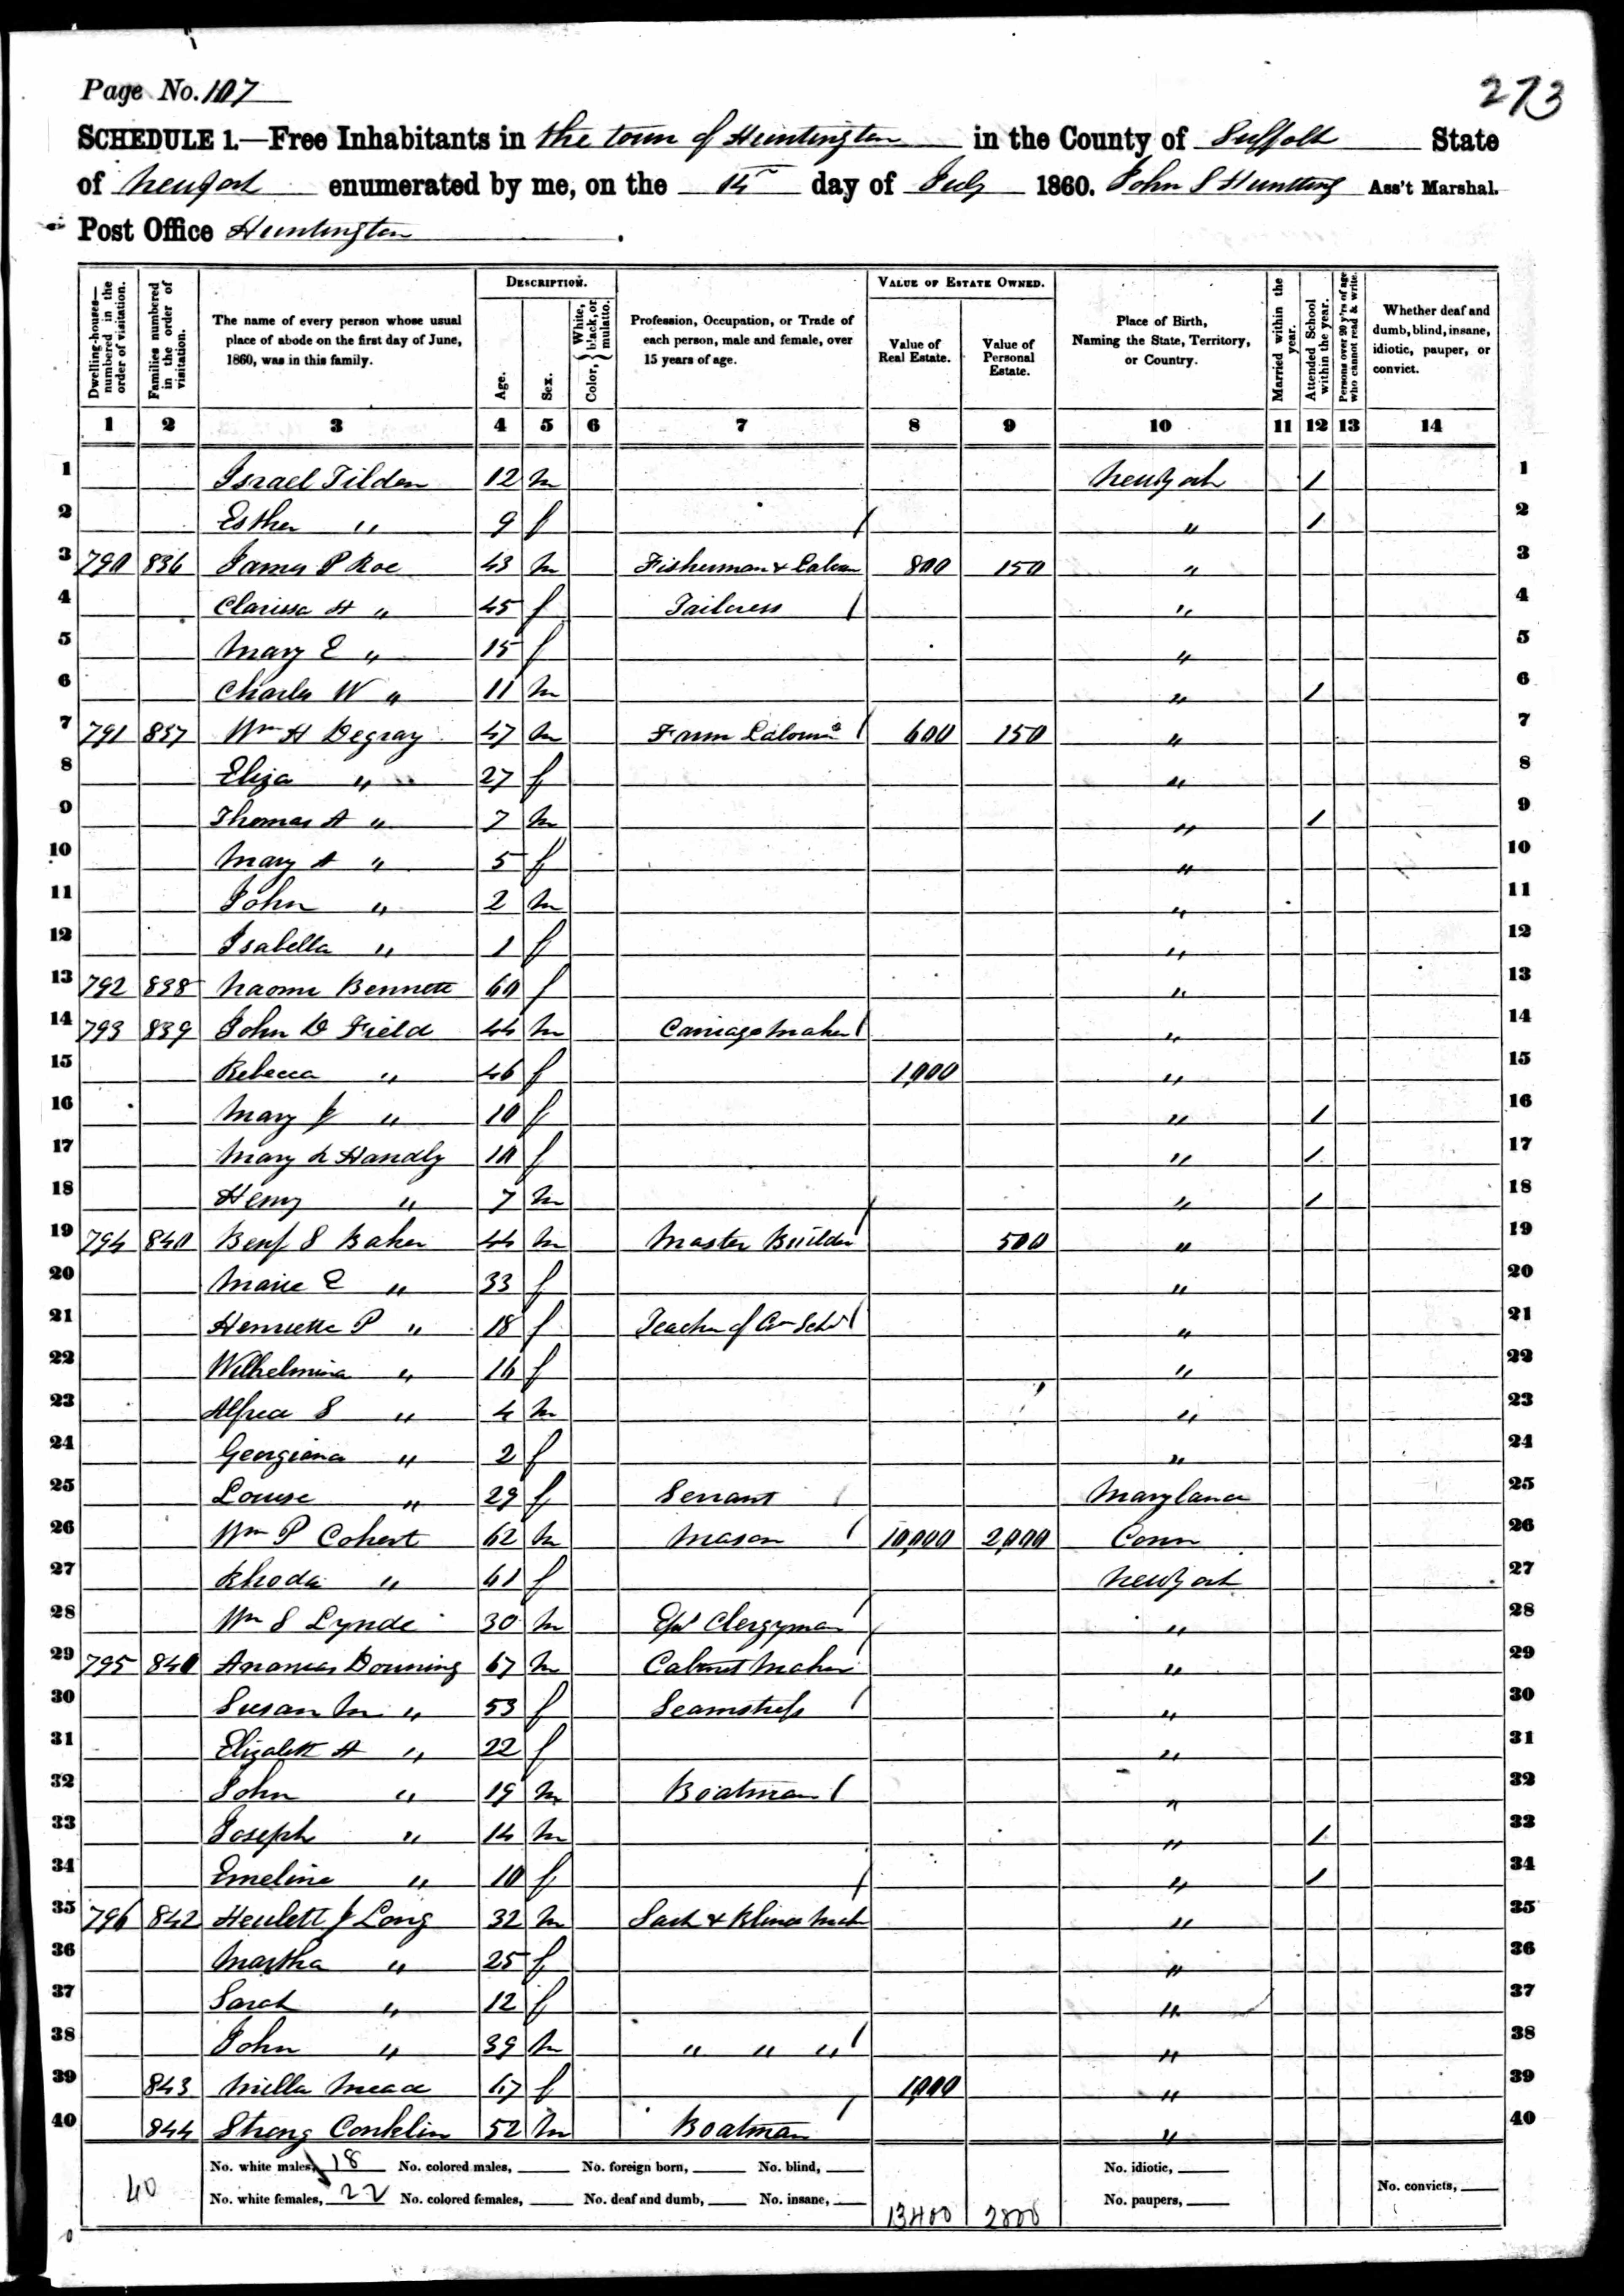 Page No. 107
273
SCHEDULE 1.—Free Inhabitants in the town of Huntington in the County of Suffolk State
of New York enumerated by me, on the 14 day of July 1860. John S Huntting Ass't Marshal.
Post Office Huntington.
Dwelling-houses—numbered in the order of visitation.
Families numbered in the order of visitation.
The name of every person whose usual place of abode on the first day of June, 1860, was in this family.
DESCRIPTION.
Age.
Sex.
Color, { White, black, or mulatto.
Profession, Occupation, or Trade of each person, male and female, over 15 years of age.
VALUE OF ESTATE OWNED.
Value of Real Estate.
Value of Personal Estate.
Place of Birth, Naming the State, Territory, or Country.
Married within the year.
Attended School within the year.
Persons over 20 y'rs of age who cannot read & write.
Whether deaf and dumb, blind, insane, idiotic, pauper, or convict.
1 2 3 4 5 6 7 8 9 10 11 12 13 14
1 Israel Tilden 12 m New York / 1
2 Esther " 9 f " / 2
3 790 836 James P Roe 43 m Fisherman & 800 150 " 3
4 Clarissa H " 45 f Tailoress " 4
5 Mary E " 15 f " 5
6 Charles W " 11 m " / 6
7 791 837 Wm H Degray 47 m Farm 600 150 " 7
8 Eliza " 27 f " 8
9 Thomas A " 7 m " / 9
10 Mary A " 5 f " 10
11 John " 2 m " 11
12 Isabella " 1 f " 12
13 792 838 Naomi Bennett 60 f " 13
14 793 839 John D Field 44 m Carriage Maker " 14
15 Rebecca " 46 f 1,000 " 15
16 Mary J " 10 f " / 16
17 Mary L Handly 10 f " / 17
18 Henry " 7 m " / 18
19 794 840 Benj S Baker 44 m Master Builder 500 " 19
20 Marie E " 33 f " 20
21 Henrietta P " 18 f Teacher of Com Schl " 21
22 Wilhelmina " 16 f " 22
23 Alfred S " 4 m " 23
24 Georgiana " 2 f " 24
25 Louise " 29 f Servant Maryland 25
26 Wm P 62 m Mason 10,000 2,000 Conn 26
27 Rhoda " 61 f New York 27
28 Wm S Lynde 30 m Epl Clergyman " 28
29 795 841 Ananias Downing 67 m Cabinet Maker " 29
30 Susan M " 53 f Seamstress " 30
31 Elizabeth A " 22 f " 31
32 John " 19 m Boatman " 32
33 Joseph " 14 m " / 33
34 Emeline " 10 f " / 34
35 796 842 Hewlett J Long 32 m Sash & Blind Mak " 35
36 Martha " 25 f " 36
37 Sarah " 12 f " 37
38 John " 39 m " " " " 38
39 843 Mead 67 f 1,000 " 39
40 844 Strong Conklin 52 m Boatman " 40
40
No. white males, 18 No. colored males, No. foreign born, No. blind, No. idiotic,
No. white females, 22 No. colored females, No. deaf and dumb, No. insane, No. paupers, No. convicts,
13400 2800